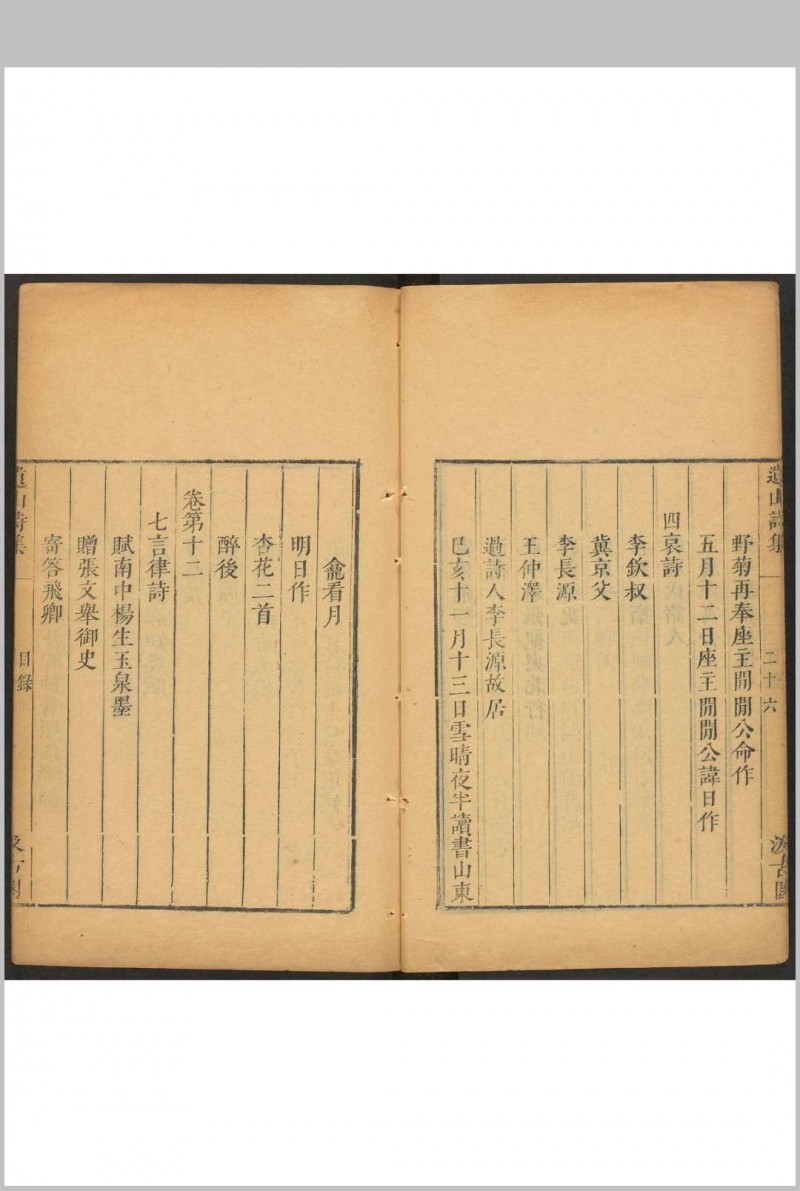 遺山詩集
二十六
汲古閣
野菊再奉座主閒閒公命作
五月十二日座主閒閒公諱日作
四哀詩
李欽叔
冀京父
李長源
王仲澤
過詩人李長源故居
巳亥十一月十三日雪晴夜半讀書山東
龕看月
明日作
杏花二首
醉後
卷第十二
七言律詩
賦南中楊生玉泉墨
贈張文舉御史
寄答飛卿
遺山詩集
目錄
汲古閣